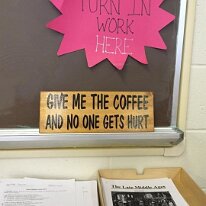 TURN IN
WORK
HERE
GIVE ME THE COFFEE
AND NO ONE GETS HURT
The Late Middle Ages